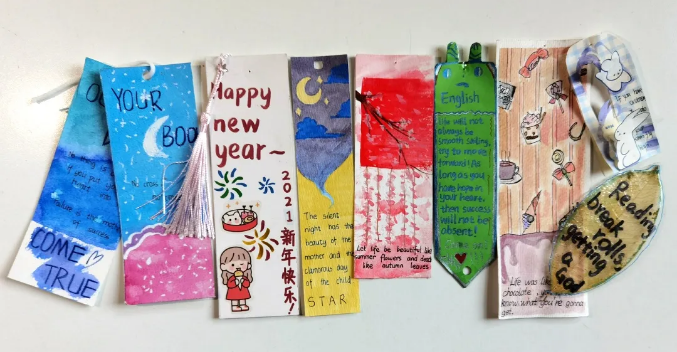 COME
TRUE
YOUR
BOO
Happy
new
year~
2021新年快乐!
The silent
night has the
beauty of the
mother and the
clamorous day
of the child
STAR
Let life be beautiful like
summer flowers and death
like autumn leaves.
English
life will not
always be
smooth sailing,
try to move
forward! As
long as you
have hope in
your heart,
then success
will not be
absent!
Life was like
chocolate, you
know what you're gonna
get.
Reading
break rolls,
getting
a God